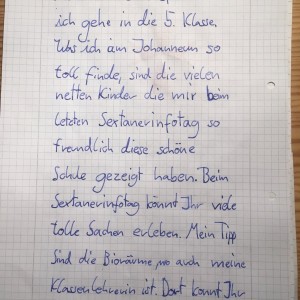 ich gehe in die 5. Klasse.
Was ich am Johanneum so
toll finde, sind die vielen
netten Kinder die mir beim
letzten Sextanerinfotag so
freundlich diese schöne
Schule gezeigt haben. Beim
Sextanerinfotag könnt Ihr viele
tolle Sachen erleben. Mein Tipp
sind die Bioräume, wo auch meine
Klassenlehrerin ist. Dort könnt Ihr